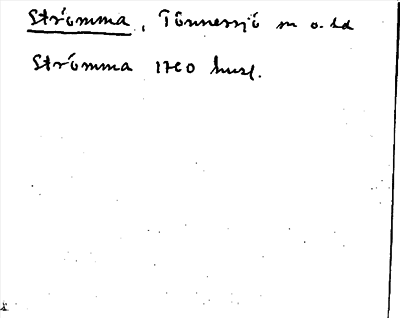 Strömma, Tönnersjö sn o. hd
Strömma 1780 husf.